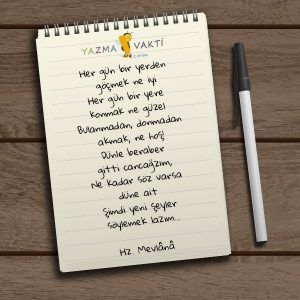 YAZMA VAKTİ
Her gün bir yerden
göçmek ne iyi
Her gün bir yere
konmak ne güzel
Bulanmadan, donmadan
akmak, ne hoş!
Dünle beraber
gitti cancağzım,
Ne kadar söz varsa
düne ait
Şimdi yeni şeyler
söylemek lazım...
Hz. Mevlânâ